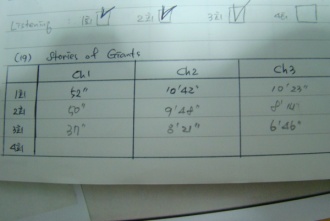 Listening 1회 2회 3회 4회
(19) Stories of Giants
Ch1 Ch2 Ch3
1회 52" 10'42" 10'23"
2회 50" 9'44"
3회 37" 8'21" 6'46"
4회